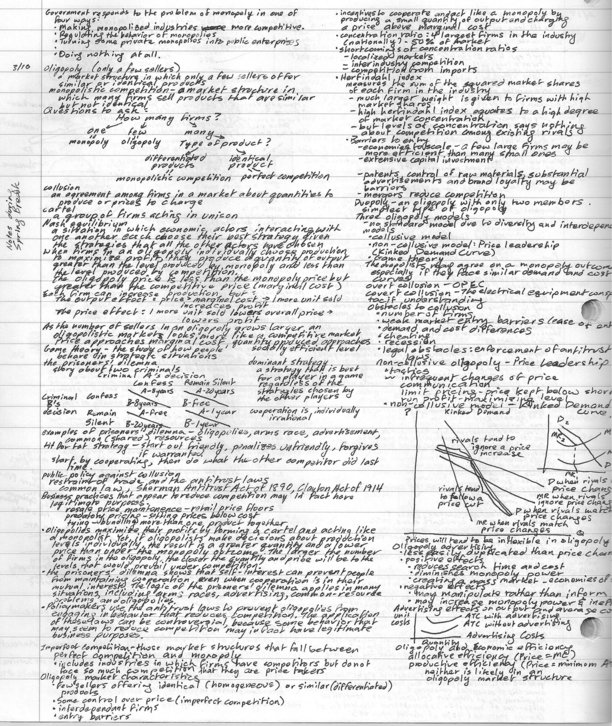 Government responds to the problem of monopoly in one of
four ways:
• Making monopolized industries more competitive.
• Regulating the behavior of monopolies
• Turning some private monopolies into public enterprises
• Doing nothing at all.
3/10
Oligopoly (only a few sellers)
a market structure in which only a few sellers offer
similar or identical products
monopolistic competition - a market structure in
which many firms sell products that are similar
but not identical
Questions to ask:
How many firms?
one few many
monopoly oligopoly Type of product?
differentiated products identical product
monopolistic competition perfect competition
Notes during Spring Break
collusion
an agreement among firms in a market about quantities to
produce or prices to charge
cartel
a group of firms acting in unison
Nash equilibrium
a situation in which economic actors interacting with
one another each choose their best strategy given
the strategies that all the other actors have chosen
When firms in an oligopoly individually choose production
to maximize profit, they produce a quantity of output
greater than the level produced by monopoly and less than
the level produced by competition
The oligopoly price is less than the monopoly price but
greater than the competitive price (marginal cost)
Each firm can increase production, but
The output effect: price > marginal cost → 1 more unit sold
increases profit
The price effect: 1 more unit sold lowers overall price →
lowers profit
As the number of sellers in an oligopoly grows larger, an
oligopolistic market looks more like a competitive market
Price approaches marginal cost, quantity produced approaches
socially efficient level
Game theory - the study of how people
behave in strategic situations
The prisoners' dilemma
story about two criminals
dominant strategy
a strategy that is best
for a player in a game
regardless of the
strategies chosen by
the other players
Criminal A's decision
Confess Remain Silent
Criminal B's decision
Confess A-8 years B-8 years A-20 years B-free
Remain Silent A-free B-20 years A-1 year B-1 year
cooperation is individually
irrational
examples of prisoners' dilemma - oligopolies, arms race, advertisement,
common (shared) resources
tit for tat strategy - start out friendly, penalizes unfriendly, forgives
if warranted
start by cooperating, then do what the other competitor did last
time
public policy against collusion
restraint of trade and the antitrust laws
common law, Sherman Antitrust Act of 1890, Clayton Act of 1914
Business practices that appear to reduce competition may in fact have
legitimate purposes
resale price maintenance - retail price floors
predatory pricing - slashing prices below cost
tying - bundling more than one product together
• Oligopolists maximize their profits by forming a cartel and acting like
a monopolist. Yet, if oligopolists make decisions about production
levels individually, the result is a greater quantity and a lower
price than under the monopoly outcome. The larger the number
of firms in the oligopoly, the closer the quantity and price will be to the
levels that would prevail under competition.
• The prisoners' dilemma shows that self-interest can prevent people
from maintaining cooperation, even when cooperation is in their
mutual interest. The logic of the prisoners' dilemma applies in many
situations, including arms races, advertising, common-resource
problems, and oligopolies.
• Policymakers use the antitrust laws to prevent oligopolies from
engaging in behavior that reduces competition. The application
of these laws can be controversial, because some behavior that
may seem to reduce competition may in fact have legitimate
business purposes.
Imperfect competition - those market structures that fall between
perfect competition and monopoly
• includes industries in which firms have competitors but do not
face so much competition that they are price takers
Oligopoly market characteristics
• Few sellers offering identical (homogeneous) or similar (differentiated)
products
• Some control over price (imperfect competition)
• interdependent firms
• entry barriers
• incentives to cooperate and act like a monopoly by
producing a small quantity of output and charging
a price above marginal cost
• concentration ratio: 4 largest firms in the industry
(nationally) - 50% of market
• shortcomings of concentration ratios
- localized markets
- interindustry competition
- competition from imports
Herfindahl index
- measures the sum of the squared market shares
of each firm in the industry
- much larger weight is given to firms with high
market shares
- high herfindahl index equates to a high degree
of market concentration
- but levels of concentration says nothing
about competition among existing rivals
Barriers to entry
- economies to scale - a few large firms may be
more efficient than many small ones
- extensive capital investment
- patents, control of raw materials, substantial
advertisements and brand loyalty may be
barriers
- mergers reduce competition
Duopoly - an oligopoly with only two members.
simplest type of oligopoly
Three oligopoly models
- no standard model due to diversity and interdependence
models
- collusive model
- non-collusive model: Price leadership
(Kinked Demand Curve)
- Game theory
The duopolists may agree on a monopoly outcome
especially if they face similar demand and cost
curves
overt collusion - OPEC
covert collusion - The electrical equipment
tacit understanding
obstacles to collusion
• number of firms
• weak market entry barriers
• demand and cost differences
• cheating
• recession
• legal obstacles: enforcement of antitrust
laws
non-collusive oligopoly - Price Leadership
• tactics
infrequent changes of price
communication
limit pricing - price kept below short
run profit-maximizing level
• non-collusive model - Kinked Demand
Curve
Kinked Demand
rivals tend to
ignore a price
increase
rivals tend
to follow a
price cut
D when rivals
ignore price changes
D when rivals match
price changes
ME when rivals match
price changes
Prices will tend to be inflexible in oligopoly
Oligopoly advertising
less easily duplicated than price changes
• positive effects
- reduces search time and cost
- diminishes monopoly power
- creating a mass market - economies of
• negative effects
- may manipulate rather than inform
- may increase monopoly power
Advertising effects on output and average
unit costs
ATC with advertising
ATC without advertising
Quantity
Advertising Costs
Oligopoly and economic efficiency
allocative efficiency (Price=MC)
productive efficiency (Price=minimum
neither is likely in an
oligopoly market structure